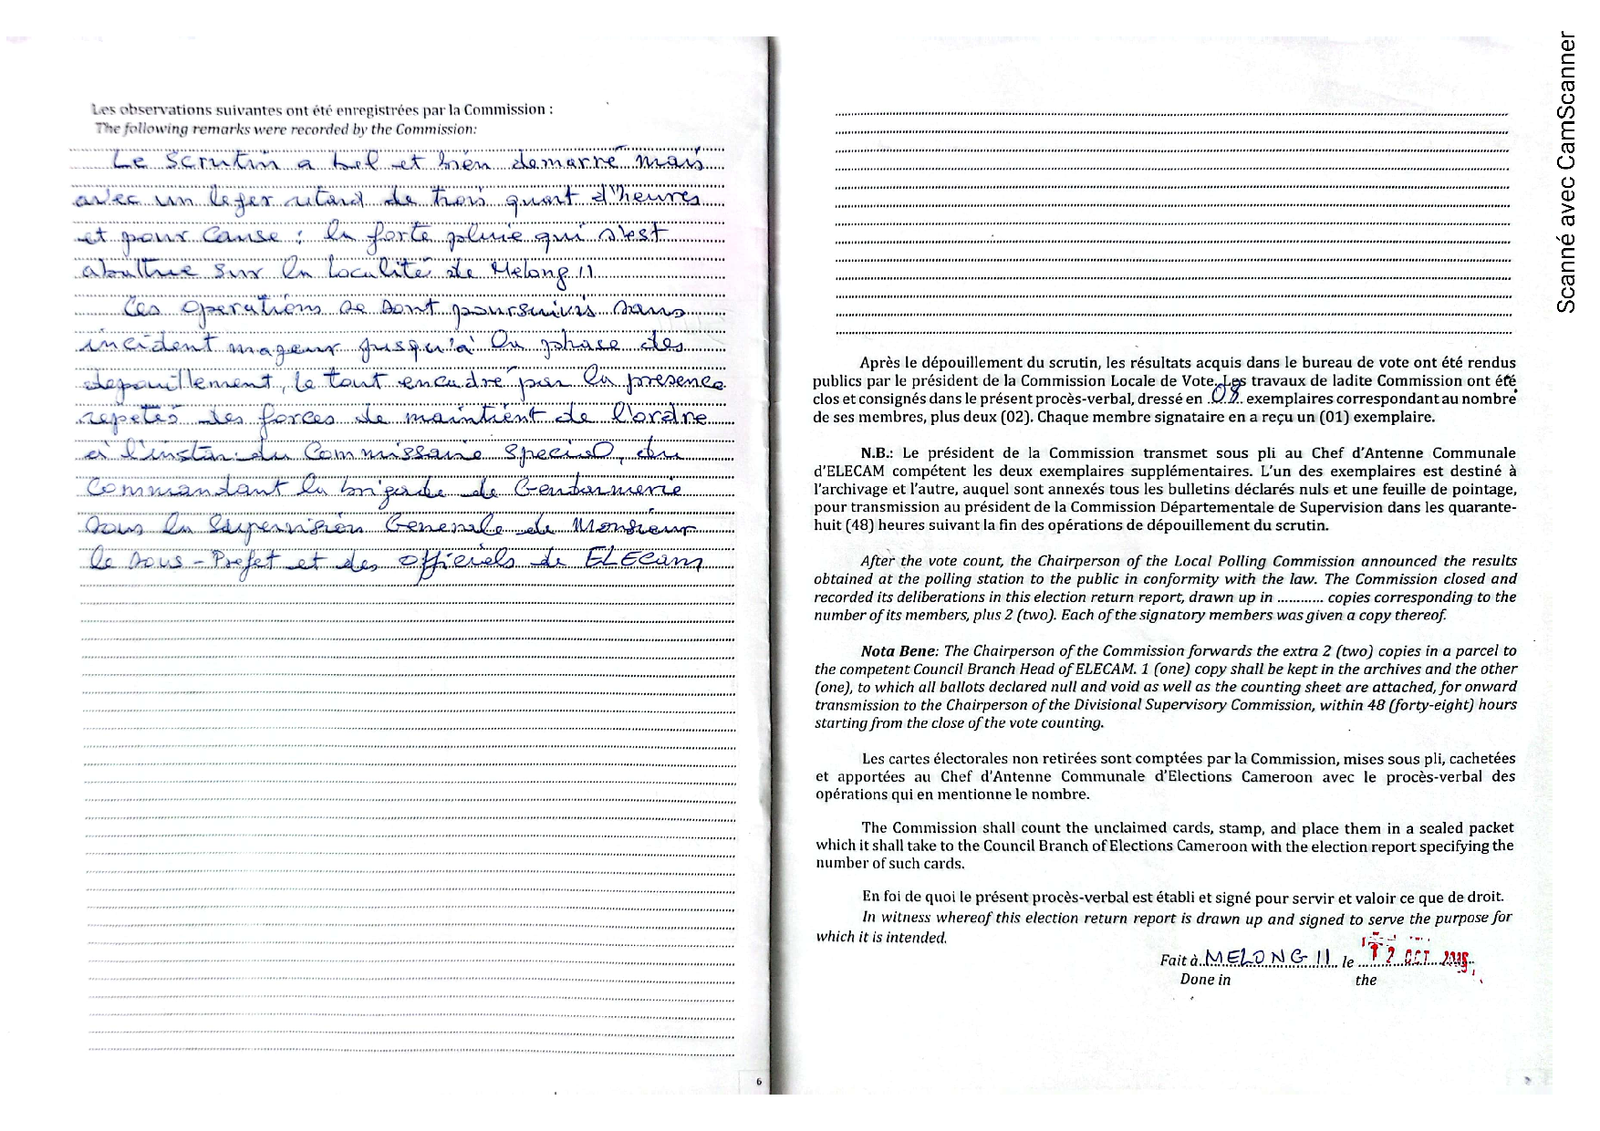 Les observations suivantes ont été enregistrées par la Commission :
The following remarks were recorded by the Commission:
Le scrutin a bel et bien demarré mais
avec un leger retard de trois quart d'heures
et pour cause : la forte pluie qui s'est
abattue sur la localité de Melong II
Les operations se sont poursuivis sans
incident mageur jusqu'à la phase des
depouillement, le tout encadré par la presence
repetés des forces de maintient de l'ordre
à l'instar du Commissaire special, du
Commandant la brigade de Gendarmerie
sous la supervision Generale de Monsieur
le sous-Prefet et des officiels de ELECAM
6
Après le dépouillement du scrutin, les résultats acquis dans le bureau de vote ont été rendus
publics par le président de la Commission Locale de Vote. Les travaux de ladite Commission ont été
clos et consignés dans le présent procès-verbal, dressé en 08 exemplaires correspondant au nombre
de ses membres, plus deux (02). Chaque membre signataire en a reçu un (01) exemplaire.
N.B.: Le président de la Commission transmet sous pli au Chef d'Antenne Communale
d'ELECAM compétent les deux exemplaires supplémentaires. L'un des exemplaires est destiné à
l'archivage et l'autre, auquel sont annexés tous les bulletins déclarés nuls et une feuille de pointage,
pour transmission au président de la Commission Départementale de Supervision dans les quarante-
huit (48) heures suivant la fin des opérations de dépouillement du scrutin.
After the vote count, the Chairperson of the Local Polling Commission announced the results
obtained at the polling station to the public in conformity with the law. The Commission closed and
recorded its deliberations in this election return report, drawn up in ............ copies corresponding to the
number of its members, plus 2 (two). Each of the signatory members was given a copy thereof.
Nota Bene: The Chairperson of the Commission forwards the extra 2 (two) copies in a parcel to
the competent Council Branch Head of ELECAM. 1 (one) copy shall be kept in the archives and the other
(one), to which all ballots declared null and void as well as the counting sheet are attached, for onward
transmission to the Chairperson of the Divisional Supervisory Commission, within 48 (forty-eight) hours
starting from the close of the vote counting.
Les cartes électorales non retirées sont comptées par la Commission, mises sous pli, cachetées
et apportées au Chef d'Antenne Communale d'Elections Cameroon avec le procès-verbal des
opérations qui en mentionne le nombre.
The Commission shall count the unclaimed cards, stamp, and place them in a sealed packet
which it shall take to the Council Branch of Elections Cameroon with the election report specifying the
number of such cards.
En foi de quoi le présent procès-verbal est établi et signé pour servir et valoir ce que de droit.
In witness whereof this election return report is drawn up and signed to serve the purpose for
which it is intended.
Fait à MELONG II le 12 OCT
Done in the
Scanné avec CamScanner